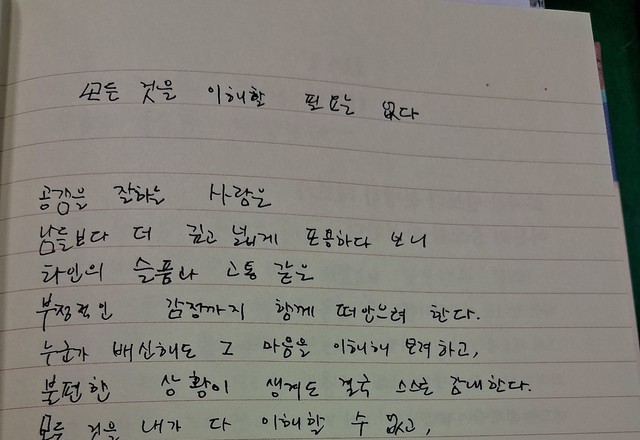 모든 것을 이해할 필요는 없다
공감을 잘하는 사람은
남들보다 더 깊고 넓게 포용하다 보니
타인의 슬픔과 고통 같은
부정적인 감정까지 함께 떠안으려 한다.
누군가 배신해도 그 마음을 이해해 보려하고,
불편한 상황이 생겨도 결국 스스로 감내한다.
모든 것을 내가 다 이해할 수 없고,